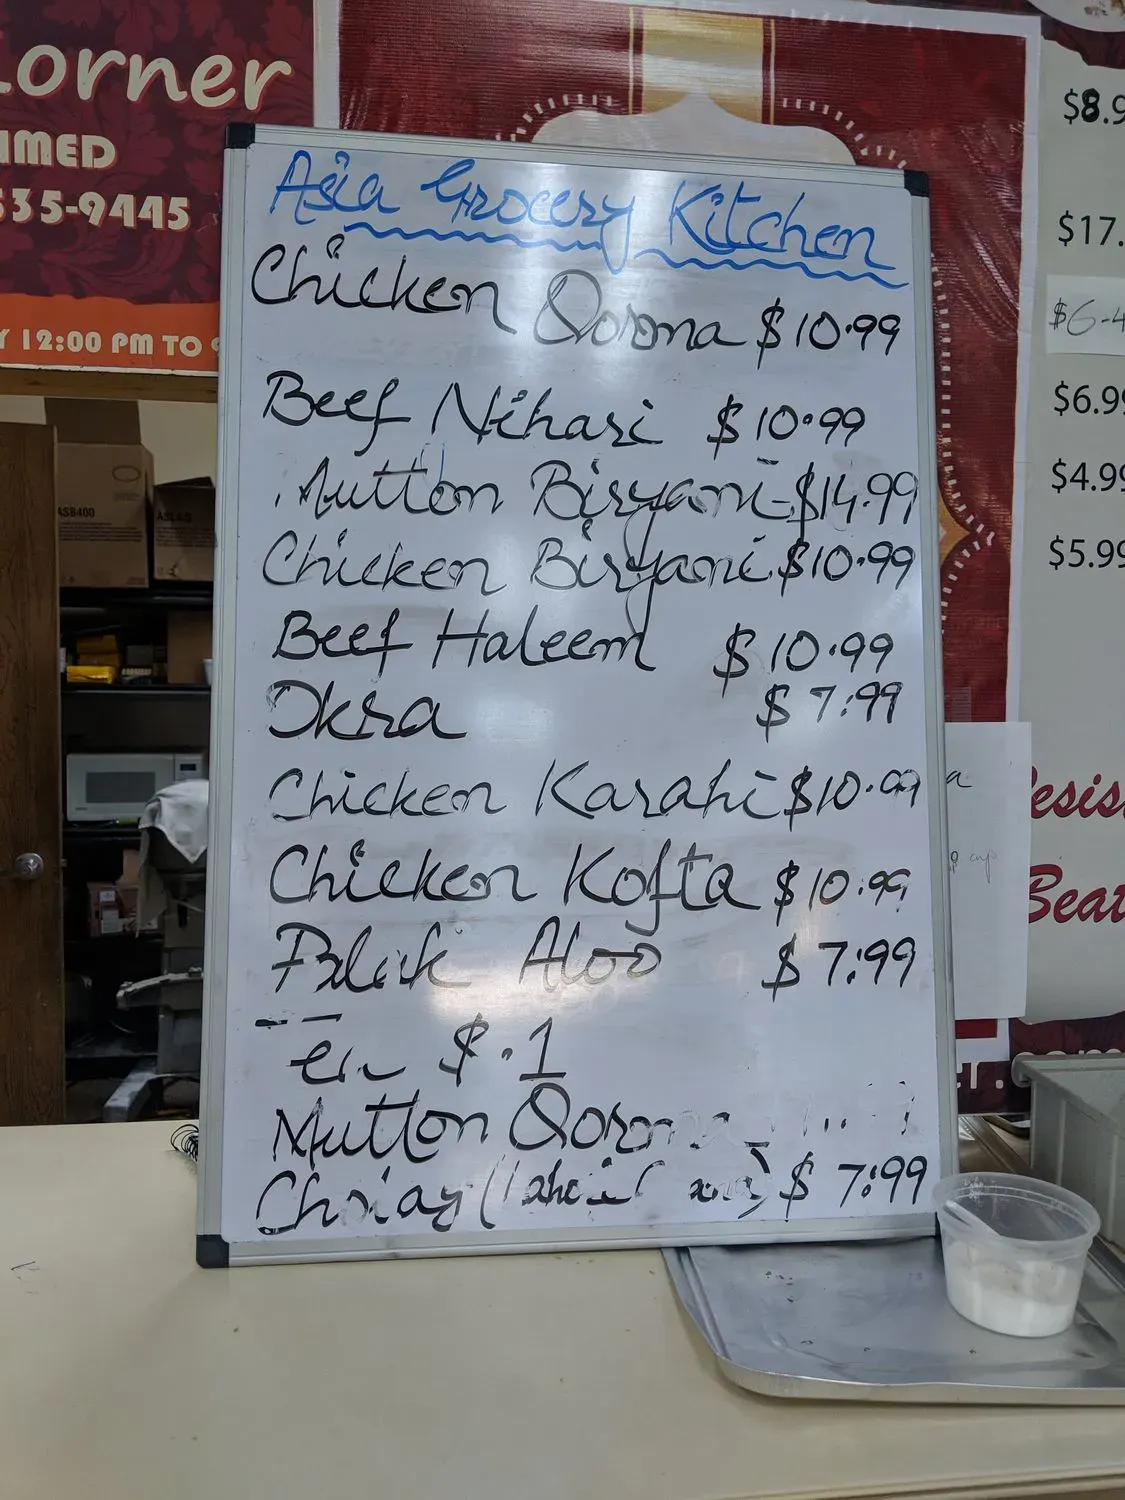 orner
MED
535-9445
12:00 PM TO
Asia Grocery Kitchen
Chicken Qorma $10.99
Beef Nihari $10.99
Mutton Biryani-$14.99
Chicken Biryani $10.99
Beef Haleem $10.99
Okra $7.99
Chicken Karahi $10.99
Chicken Kofta $10.99
Palak Aloo $7.99
$.1
Mutton Qorma
$7.99
ASB400
$8.9
$17.
$6.99
$4.99
$5.99
esis
Beat